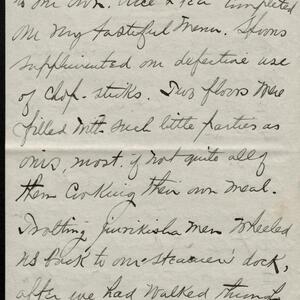 our own. Rice & tea completed
our very tasteful menu. Spoons
supplemented our defective use
of chop-sticks. Two floors were
filled with such little parties as
ours, most, if not quite all of
them cooking their own meal.
Trotting jinrikisha men wheeled
us back to our steamer's dock,
after we had walked through